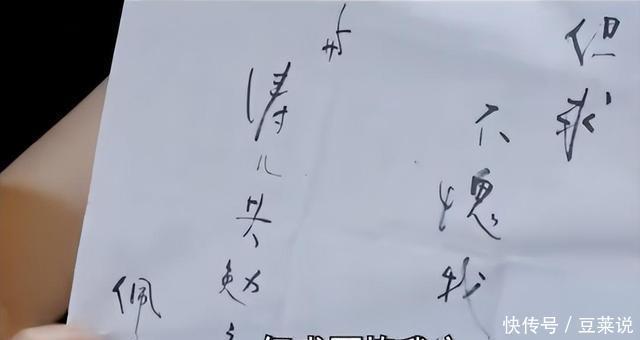 但求
不愧我
与
涛儿共勉之
佩
快传号／豆菜说